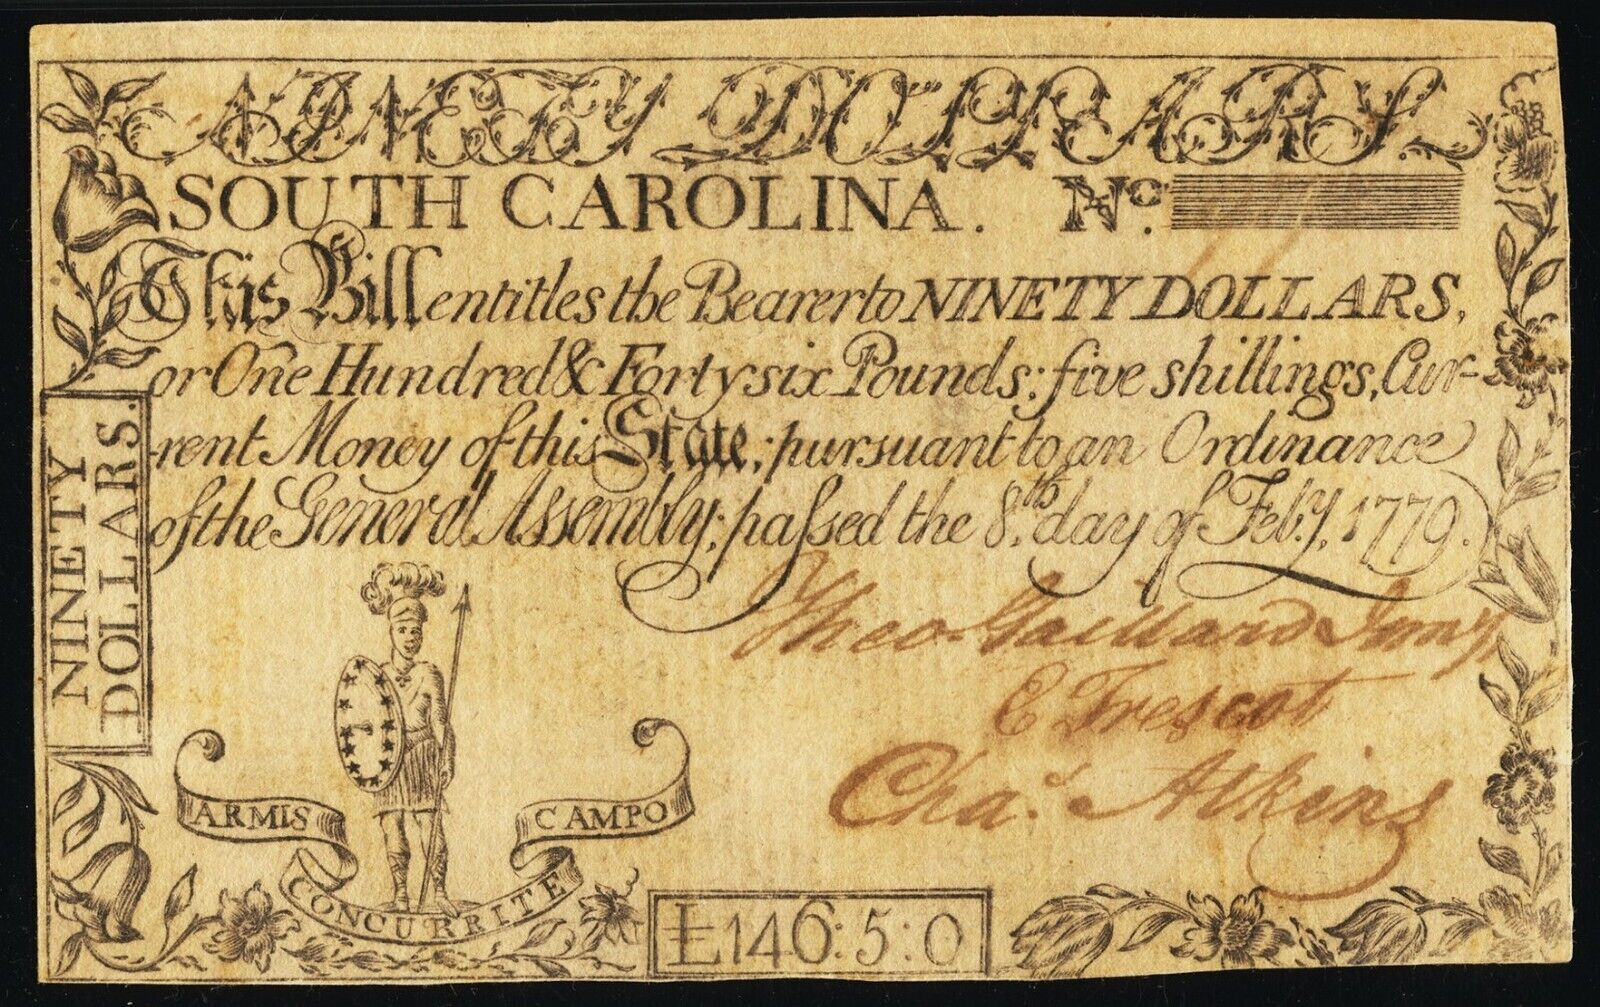 NINETY DOLLARS.
SOUTH CAROLINA. No.
This Bill entitles the Bearer to NINETY DOLLARS,
or One Hundred & Forty six Pounds; five shillings, Cur-
rent Money of this State; pursuant to an Ordinance
of the General Assembly; paſsed the 8th. day of Feb.y, 1779.
NINETY
DOLLARS.
Theo Gaillard Junr
E Trescot
Chas. Atkins
ARMIS CONCURRITE CAMPO
£146:5:0